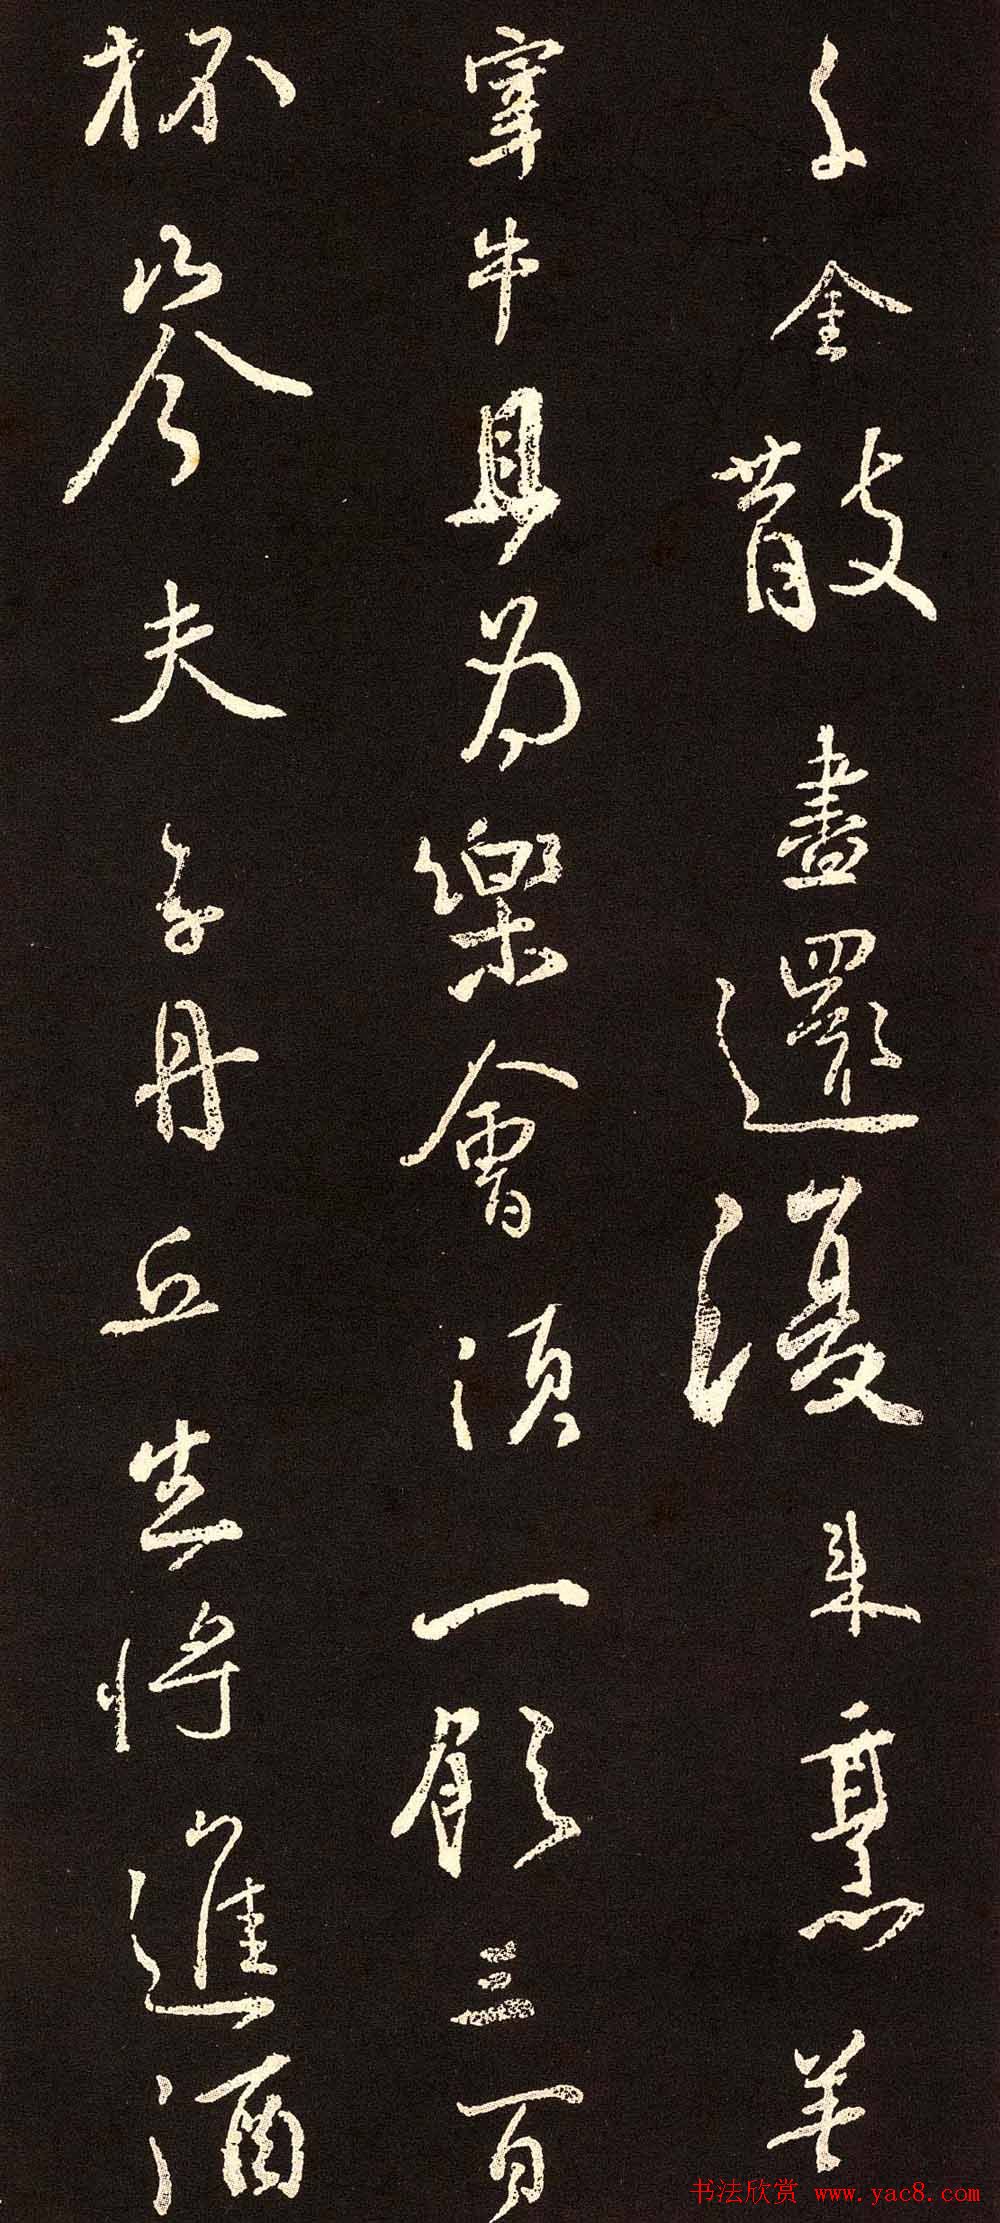 千金散盡還復来烹羊
宰牛且為樂會須一飲三百
杯岑夫子丹丘生將進酒
书法欣赏 www.yac8.com